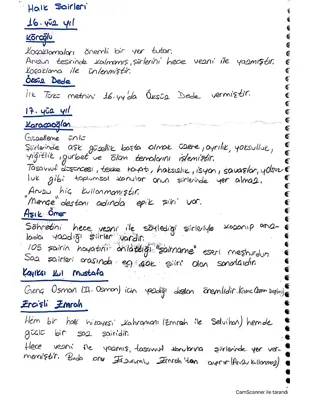 Halk Şairleri
16. yüz yıl
Köroğlu
Koçaklamaları önemli bir yer tutar.
Aruzun tesirinde kalmamış, şiirlerini hece vezni ile yazmıştır.
Koçaklama ile ünlenmiştir.
Öksüz Dede
İlk Türkü metnini 16. yy'da Öksüz Dede vermiştir.
17. yüz yıl
Karacaoğlan
Güzelleme
Şiirlerinde aşk güzellik başta olmak üzere, ayrılık, yoksulluk,
yiğitlik, gurbet ve ölüm temalarını işlemiştir.
Tasavvuf düşüncesi, tekke hayatı, haksızlık, isyan, savaşlar,
luk gibi toplumsal konular onun şiirinde yer almaz.
Aruzu hiç kullanmamıştır.
destanı adında epik şiiri var.
Aşık Ömer
Şöhretini hece vezni ile söylediği şiirleriyle kazanıp
yazdığı şiirler vardır.
105 şairin hayatını anlattığı "şairname" eseri meşhurdur
Saz şairleri arasında en çok şiiri olan sanatçıdır.
Kayıkçı Kul Mustafa
Genç Osman (II. Osman) için yazdığı destan önemlidir.
Ercişli Emrah
Hem bir halk hikayesi kahramanı (Emrah ile Selvihan) hemde
güçlü bir saz şairidir.
Hece vezni ile yazmış, tasavvuf konularına şiirlerinde yer ver-
memiştir. Erzurumlu Emrah'tan
CamScanner ile tarandı